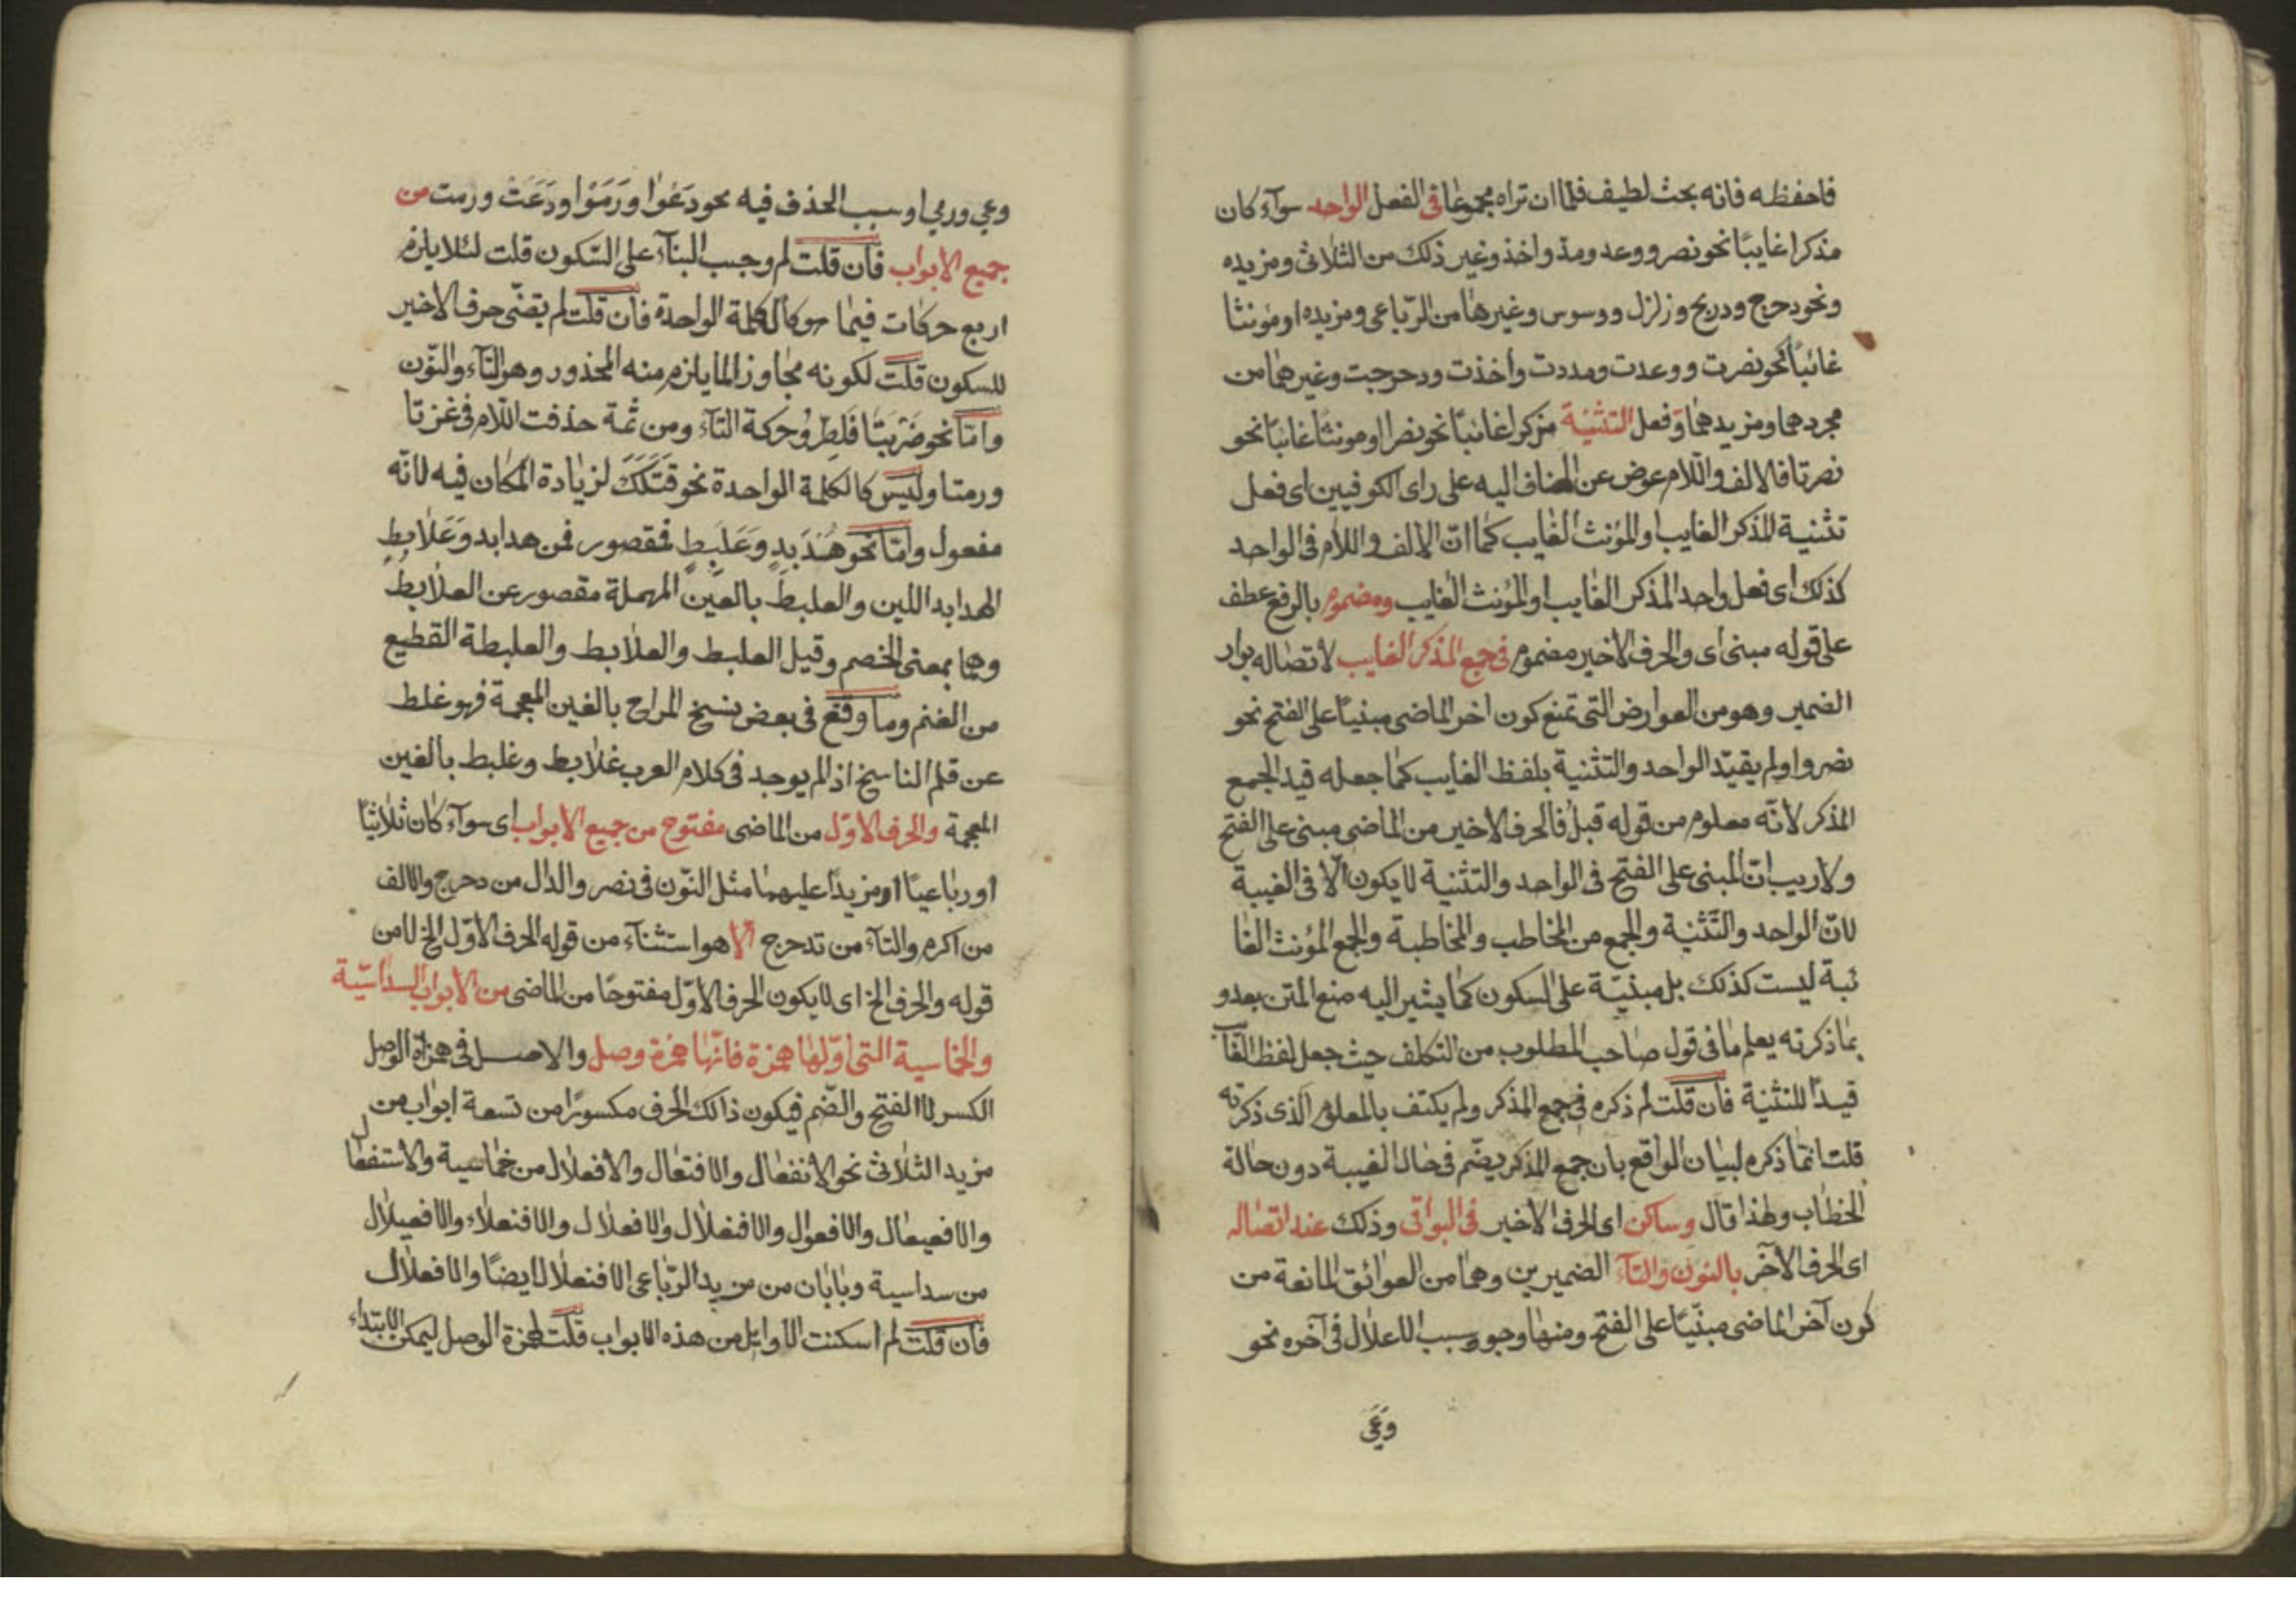 فاحفظه فانه بحث لطيف فلما ان تراه مجموعا فى الفعل الواحد سوآء كان
مذكرا غايبًا نحو نصر ووعد ومد واخذ وغير ذلك من الثلاثى ومزيده
ونحو دحرج ودربح وزلزل ووسوس وغيرها من الرّباعى ومزيده او مؤنثا
غائبًا نحو نصرت ووعدت ومددت واخذت ودحرجت وغيرهما من
مجردهما ومزيدهما وفعل التثنية مذكرا غائبًا نحو نصرا او مونثا غائبا نحو
نصرتا فالالف واللام عوض عن المضاف اليه على راى الكوفيين اى فعل
تثنية المذكر الغايب او المؤنث الغايب كما انّ الالف واللام فى الواحد
كذلك اى فعل واحد المذكر الغايب او المؤنث الغايب ومضموم بالرفع عطف
على قوله مبنى اى والحرف الاخير مضموم فى جمع المذكر الغايب لاتصاله بواو
الضمير وهو من العوارض التى تمنع كون اخر الماضى مبنيًا على الفتح نحو
نصروا ولم يقيّد الواحد والتثنية بلفظ الغايب كما جعله قيد الجمع
المذكر لانّه معلوم من قوله قبل فالحرف الاخير من الماضى مبنى على الفتح
ولا ريب انّ المبنى على الفتح فى الواحد والتثنية لا يكون الّا فى الغيبة
لانّ الواحد والتّثنية والجمع من المخاطب والمخاطبة والجمع المؤنث الغا
ئبة ليست كذلك بل مبنيّة على السكون كما يشير اليه صنع المتن بعد و
بما ذكرته يعلم ما فى قول صاحب المطلوب من التكلف حيث جعل لفظ الغايب
قيدًا للتثنية فان قلت لم ذكره فى جمع المذكر ولم يكتف بالمعلوم الذى ذكرته
قلت انما ذكره لبيان الواقع بان جمع المذكر يضّم فى حال الغيبة دون حالة
الخطاب ولهذا قال وساكن اى الحرف الاخير فى البواقى وذلك عند اتصاله
اى الحرف الآخر بالنون والتآء الضميرين وهما من العوائق المانعة من
كون آخر الماضى مبنيًّا على الفتح ومنها وجود سبب الاعلال فى آخره نحو
وَعَى
وعى ورمى او سبب الحذف فيه نحو دَعَوْا ورَمَوْا ودَعَتْ ورمت من
جميع الابواب فان قلت لم وجب البنآء على السّكون قلت لئلا يلزم
اربع حركات فيما هو كالكلمة الواحدة فان قلت لم يقضّى حرف الاخير
للسكون قلت لكونه مجاوز المايلزم منه المحذور وهو التآء والنّون
وامّا نحو ضَرَبَتَا فَلِطُروُ حركة التآء ومن ثمة حذفت اللّام فى غزتا
ورمتا وليس كالكلمة الواحدة نحو قَتَلَكَ لزيادة المكان فيه لانّه
مفعول وامّا نحو هُدَبِدٍ وعُلَبِطٍ فمقصور فمن هدابد وعُلَابِطٍ
الهدابد اللبن والعلبط بالعين المهملة مقصور عن العلابط
وهما بمعنى الخصم وقيل العلبط والعلابط والعلبطة القطيع
من الغنم وما وقع فى بعض نسخ المراح بالغين المعجمة فهو غلط
عن قلم الناسخ اذ لم يوجد فى كلام العرب غلابط وغلبط بالغين
المعجمة والحرف الاوّل من الماضى مفتوح من جميع الابواب اى سوآء كان ثلاثيًا
او رباعيًا او مزيدًا عليهما مثل النّون فى نصر والدال من دحرج والالف
من اكرم والتآء من تدحرج الّا هو استثنآء من قوله الحرف الاوّل الخ لا من
قوله والحرف الخ اى لا يكون الحرف الاوّل مفتوحًا من الماضى من الابواب السداسّية
والخماسية التى اوّلها همزة فانّها همزة وصل والاصل فى همزة الوصل
الكسر لا الفتح والضّم فيكون ذالك الحرف مكسورًا من تسعة ابواب من
مزيد الثلاثى نحو الانفعال والافتعال والافعلال من خماسية والاستفعال
والافعيعال والافعوال والافعنلال والافعلال والافنعلاء والافعيلال
من سداسية وبابان من مزيد الرّباعى الافنعلال ايضًا والافعلال
فان قلت لم اسكنت الاوايل من هذه الابواب قلت لهمزة الوصل ليمكن الابتداء